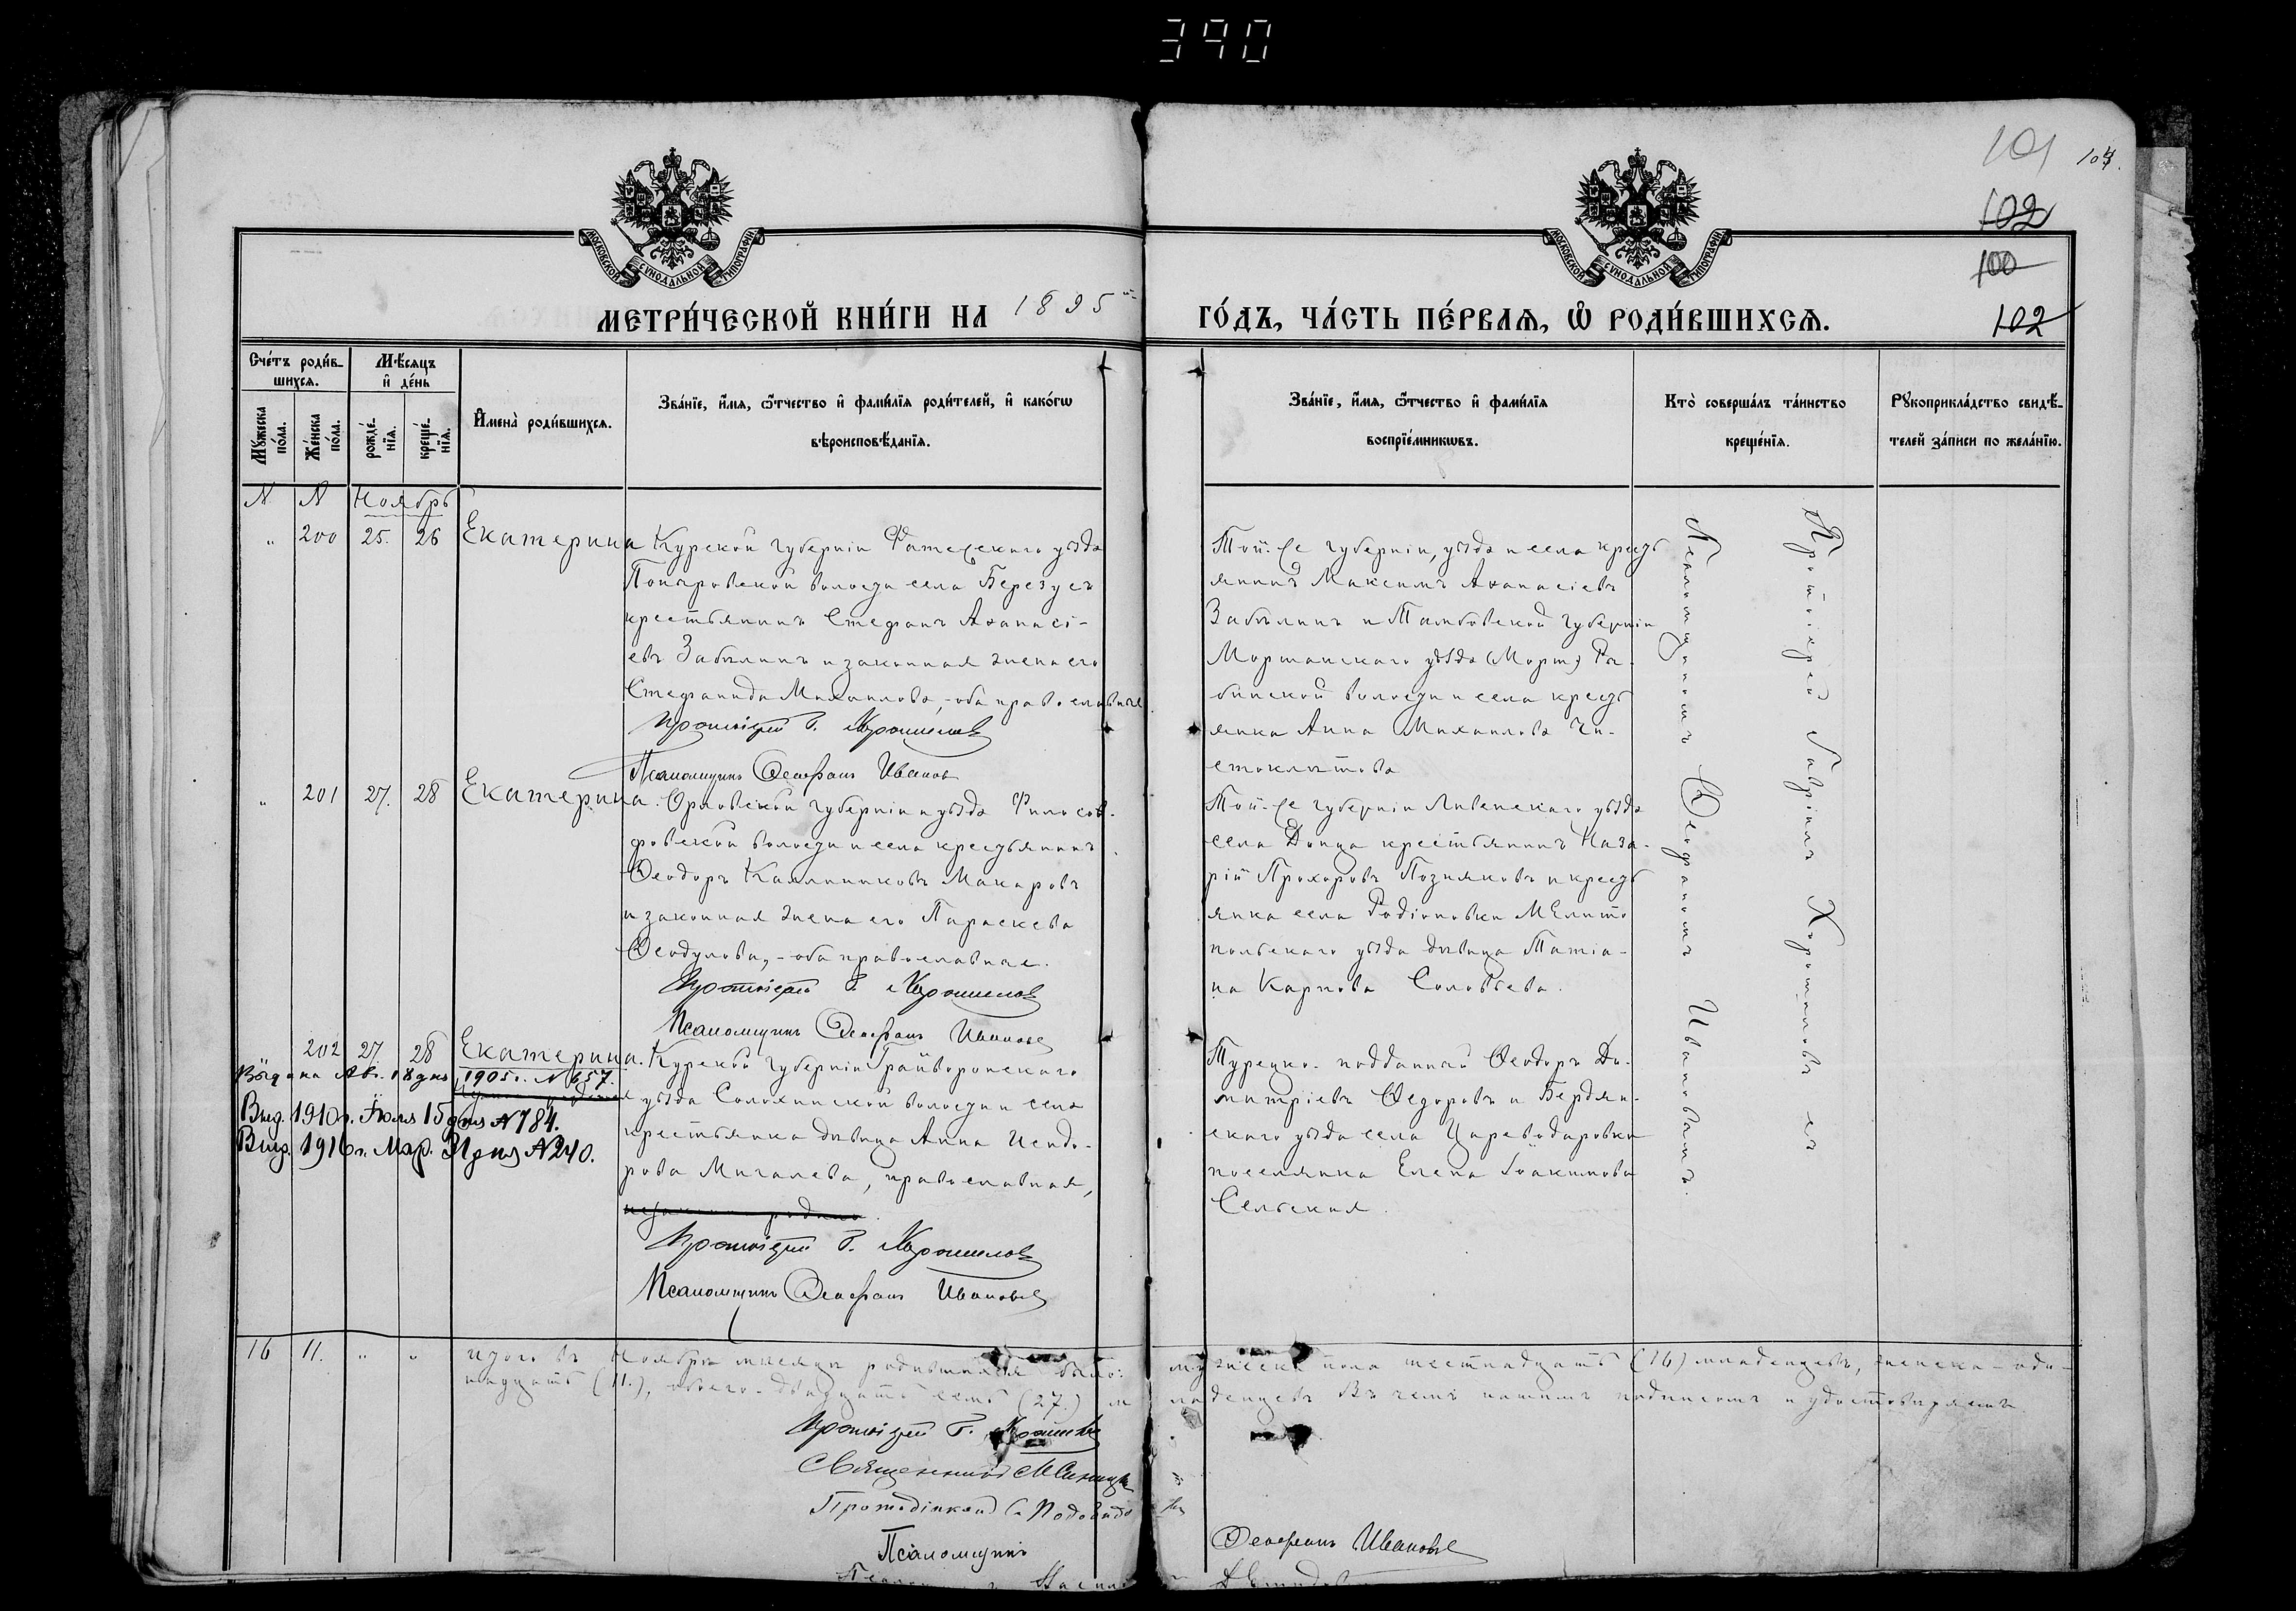 390
101 104.
102
100
102
МОСКОВСКОЙ СѴНОДАЛЬНОЙ ТИПОГРАФІИ
МОСКОВСКОЙ СѴНОДАЛЬНОЙ ТИПОГРАФІИ
МЕТРИ́ЧЕСКОЙ КНИ́ГИ НА 1895 ГО́ДЪ, ЧА́СТЬ ПЕ́РВАѦ, Ѽ РОДИ́ВШИХСѦ.
Сче́тъ роди́в-
шихсѧ.
Мꙋ́жеска по́ла.
Же́нска по́ла.
Мѣ́сѧцъ
и҆ де́нь
рожде́-
нїѧ.
креще́-
нїѧ.
И҆мена̀ роди́вшихсѧ.
Зва́нїе, и҆́мѧ, ѻ҆́тчество и҆ фами́лїѧ роди́телей, и҆ како́гѡ
вѣроисповѣ́данїѧ.
Зва́нїе, и҆́мѧ, ѻ҆́тчество и҆ фами́лїѧ
воспрїе́мникѡвъ.
Кто̀ соверша́лъ та́инство
креще́нїѧ.
Рꙋкоприкла́дство свидѣ́-
телей за́писи по жела́нїю.
N N Ноябрь
" 200 25. 26 Екатерина
Курской губерніи Фатежскаго уѣзда
волости села
крестьянинъ Стефанъ Аѳанасі-
евъ Забѣлинъ и законная жена его
Стефанида Михаилова, - оба православные
Протоіерей Г. Хорошиловъ
Псаломщикъ Ѳеофанъ Ивановъ
Той-же губерніи, уѣзда и села кресть
янинъ Максимъ Аѳанасіевъ
Забѣлинъ и Тамбовской губерніи
Моршанскаго уѣзда (Морш) Ры-
бинской волости и села кресть
янка Анна Михаилова Чи-
стоклетова
" 201 27. 28 Екатерина.
Орловской губерніи и уѣзда Философ-
фовской волости и села крестьянинъ
Ѳеодоръ Каллиниковъ Макаровъ
и законная жена его Параскева
Ѳеодулова, - оба православные.
Протоіерей Г. Хорошиловъ
Псаломщикъ Ѳеофанъ Ивановъ
Той-же губерніи Ливенскаго уѣзда
села Донца крестьянинъ Наза-
рій Прохоровъ Позняковъ и кресть
янка села Родіоновки Мелито
польскаго уѣзда дѣвица Татіа-
на Карпова Соловьева.
202 27. 28 Екатерина.
Выдана Авг. 18 дня 1905 г. N 657.
Выд. 1910 г. Іюля 15 дня N 784.
Выд. 1916 г. Мар. 31 дня N 240.
Курской губерніи Грайворонскаго
уѣзда Солохинской волости и села
крестьянка дѣвица Анна Исидо-
рова Мигалева, православная,
Протоіерей Г. Хорошиловъ
Псаломщикъ Ѳеофанъ Ивановъ
Турецко-подданный Ѳеодоръ Ди-
митріевъ Ѳедоровъ и Бердян-
скаго уѣзда села Цареводаровки
поселянка Елена Іоакимова
Сельская.
Протоіерей Гавріилъ Хорошиловъ съ
Псаломщикомъ Ѳеофаномъ Ивановымъ.
16 11. " " Итого въ Ноябрѣ мѣсяцѣ родившихся было: мужеска пола шестнадцать (16) младенцевъ, женска - оди-
надцать (11.), всего - двадцать семь (27.) младенцевъ въ чемъ нашимъ подписомъ и удостовѣряемъ
Протоіерей Г. Хорошиловъ
Священникъ
Протодіаконъ
Псаломщикъ Ѳеофанъ Ивановъ